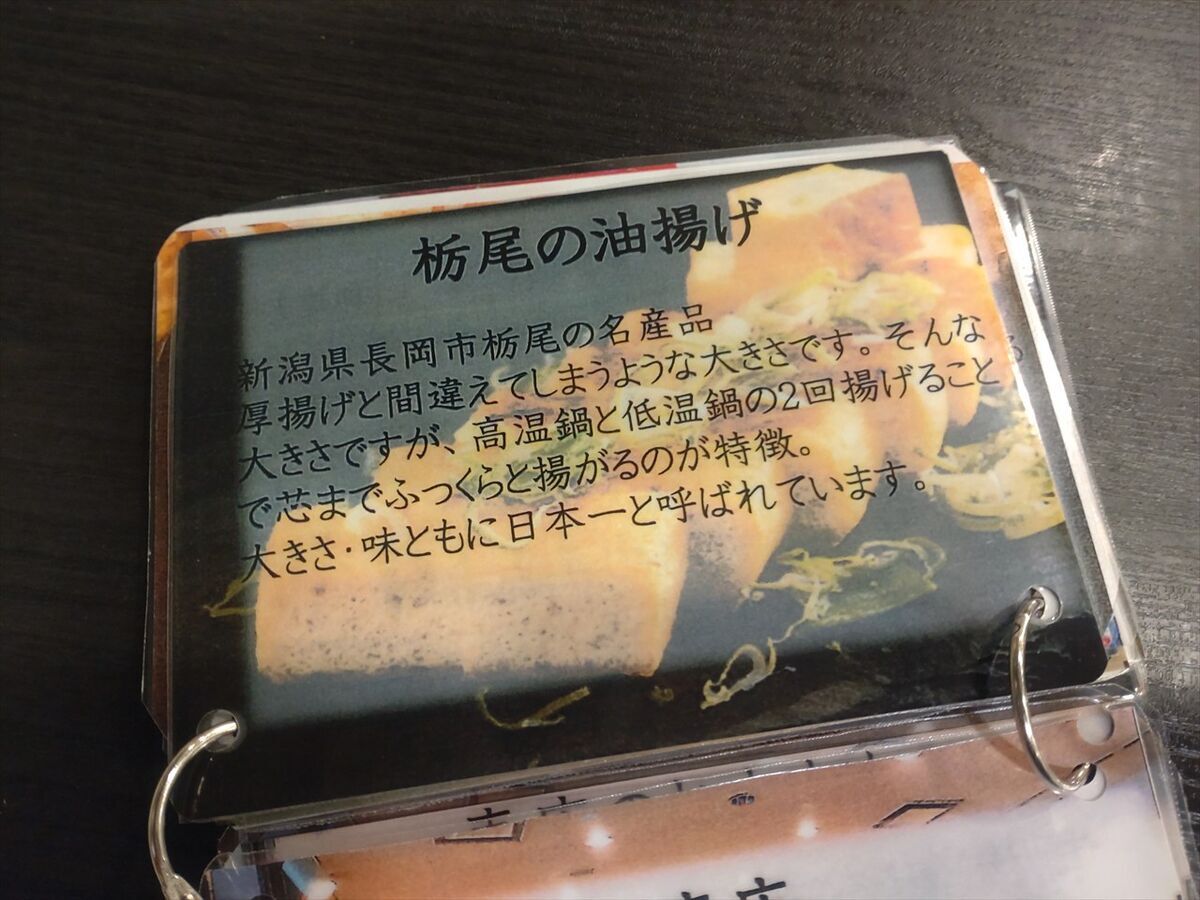 栃尾の油揚げ
新潟県長岡市栃尾の名産品
厚揚げと間違えてしまうような大きさです。そんな
大きさですが、高温鍋と低温鍋の2回揚げること
で芯までふっくらと揚がるのが特徴。
大きさ・味ともに日本一と呼ばれています。